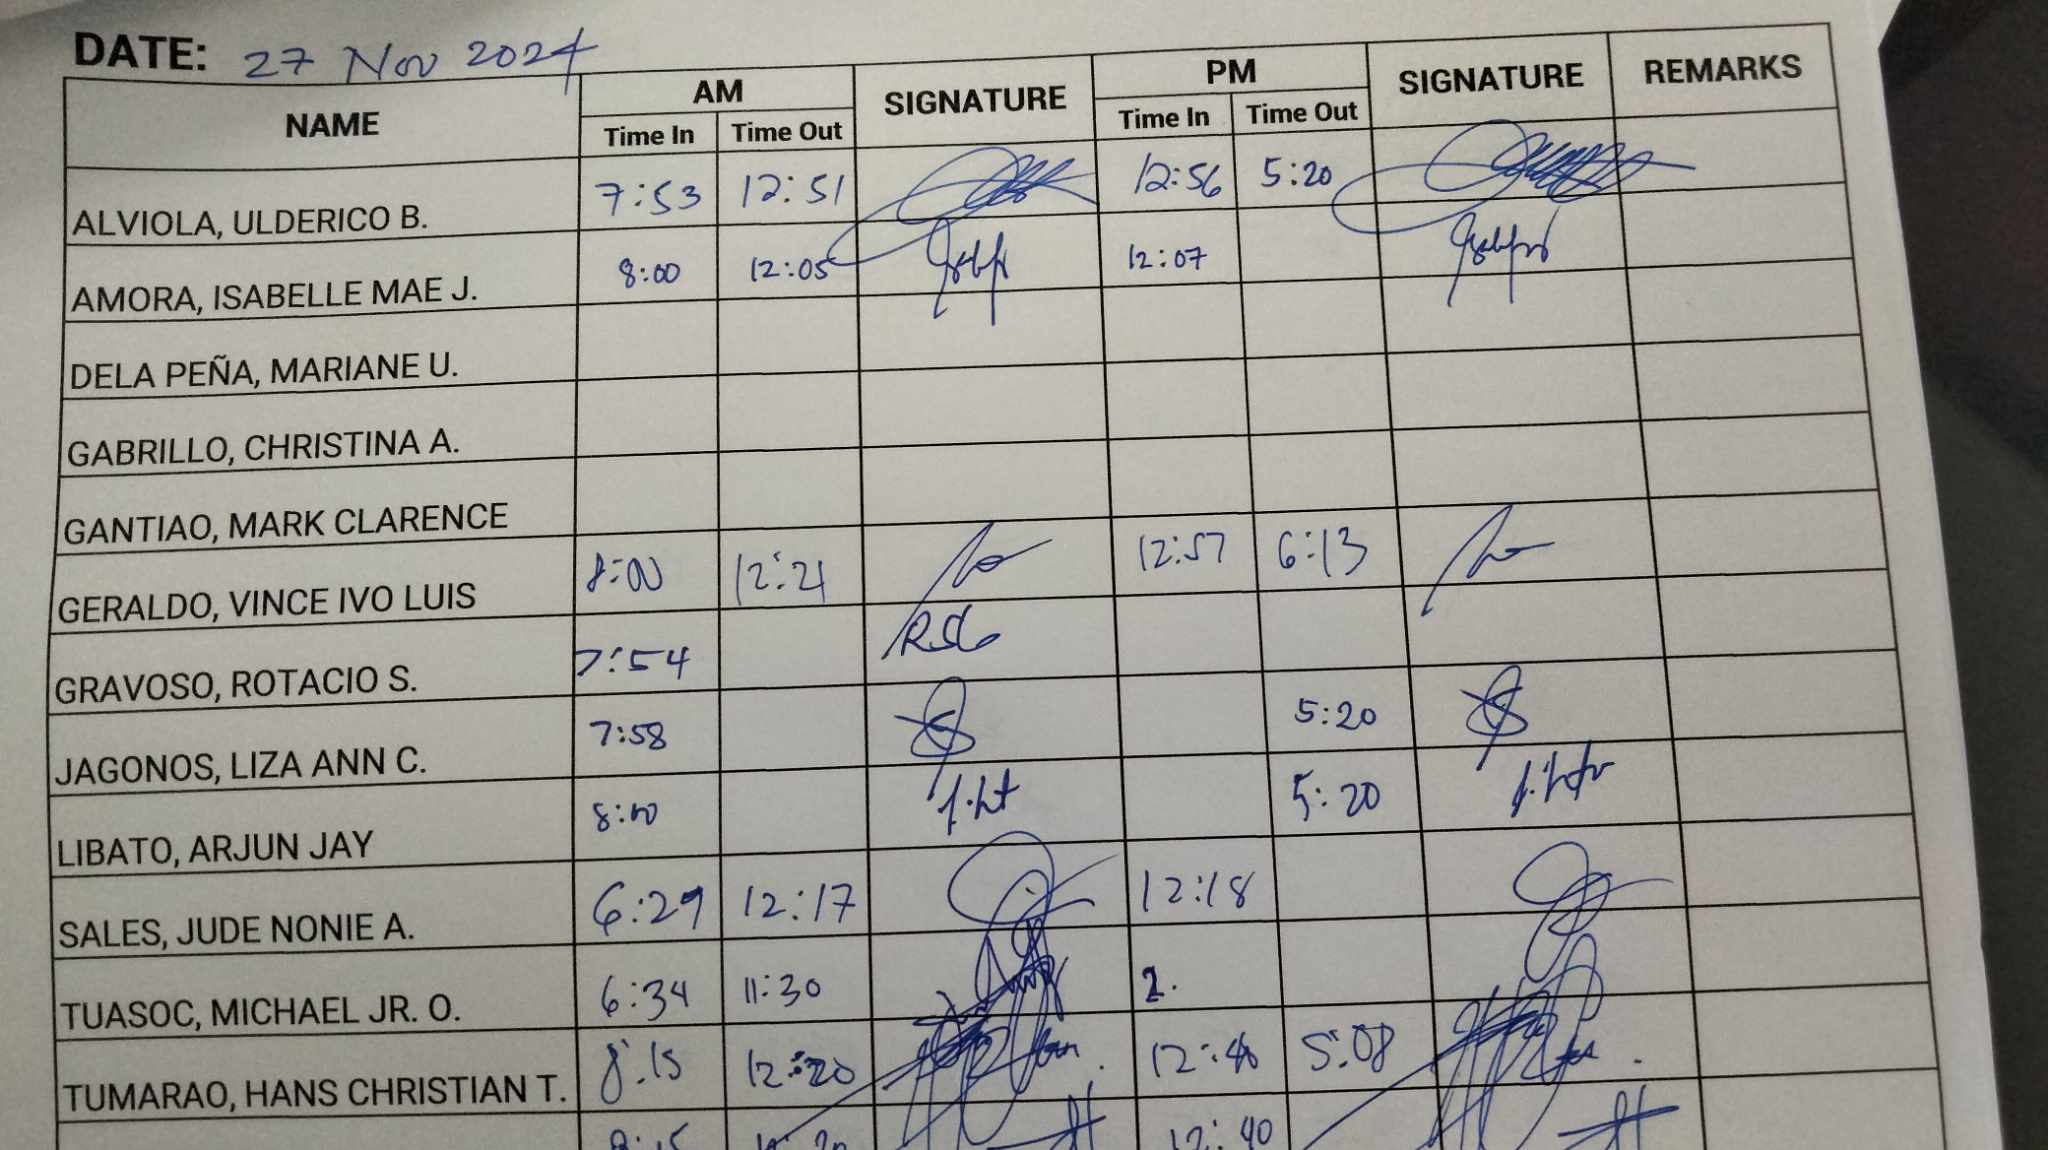 DATE: 27 Nov 2024
NAME AM SIGNATURE PM SIGNATURE REMARKS
Time In Time Out Time In Time Out
ALVIOLA, ULDERICO B. 7:53 12:51 12:56 5:20
AMORA, ISABELLE MAE J. 8:00 12:05 12:07
DELA PEÑA, MARIANE U.
GABRILLO, CHRISTINA A.
GANTIAO, MARK CLARENCE
GERALDO, VINCE IVO LUIS 8:00 12:21 12:57 6:13
GRAVOSO, ROTACIO S. 7:54 RSG
JAGONOS, LIZA ANN C. 7:58 5:20
LIBATO, ARJUN JAY 8:00 5:20
SALES, JUDE NONIE A. 6:29 12:17 12:18
TUASOC, MICHAEL JR. O. 6:34 11:30
TUMARAO, HANS CHRISTIAN T. 8:15 12:20 12:40 5:08
12:40